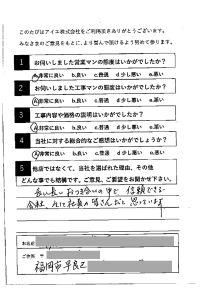 このたびはアイエ株式会社をご利用頂きありがとうございます。
みなさまのご意見をもとに、より望んで頂けるよう努めて参ります。
1 お伺いしました営業マンの態度はいかがでしたか?
a.非常に良い b.良い c.普通 d.少し悪い e.悪い
2 お伺いしました工事マンの態度はいかがでしたか?
a.非常に良い b.良い c.普通 d.少し悪い e.悪い
3 工事内容や価格の説明はいかがでしたか?
a.非常に良い b.良い c.普通 d.少し悪い e.悪い
4 当社に対する総合的なご感想はいかがでしょうか?
a.非常に良い b.良い c.普通 d.少し悪い e.悪い
5 他店ではなくて、当社を選ばれた理由、その他
どんな事でも結構です。ご意見、ご要望をお聞かせ下さい。
長い長いおつき合いの中で 信頼できる
会社 そして社員の皆さんだと思っています
お名前
ご住所 〒
福岡市早良区